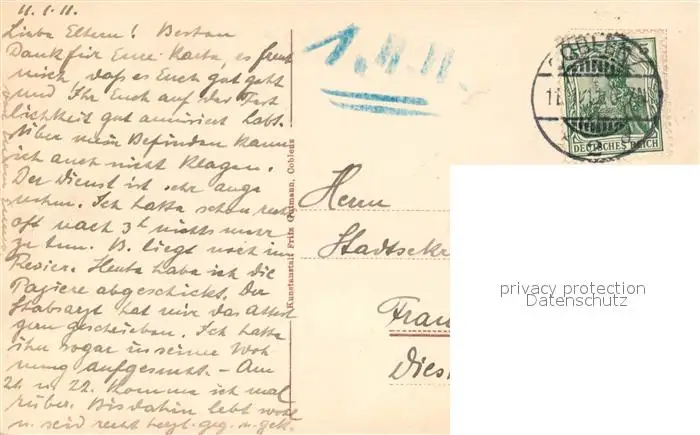 11.1.11.
Liebe Eltern! Besten
Dank für Eure Karte, es freut
mich, daß es Euch gut geht
und Ihr Euch auf der Fest
lichkeit gut amüsiert habt.
Über mein Befinden kann
ich auch nicht klagen.
Der Dienst ist sehr ange
nehm. Ich hatte schon recht
oft nach 3h nichts mehr
zu tun. B. liegt noch im
Revier. Heute habe ich die
Papiere abgeschickt. Der
Stabsarzt hat mir das Attest
gern geschrieben. Ich hatte
ihn sogar in seiner Woh
nung aufgesucht. – Am
21. u. 22. komme ich mal
rüber. Bis dahin lebt wohl
u. seid recht herzl. geg. u. gek.
Kunstanstalt Fritz Gutmann, Coblenz
1.11.
COBLENZ
DEUTSCHES REICH
Herrn
Stadtsekre
Fran
Diest
privacy protection
Datenschutz